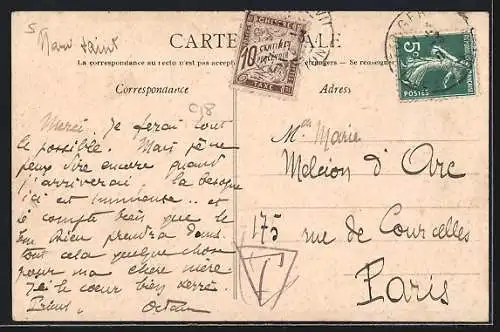 CARTE POSTALE
La correspondance au recto n'est pas accep
étrangers - Se renseigner
Correspondance
Adresse
10
CENTIMES
À PERCEVOIR
TAXE
5c
POSTES
98
Merci. Je ferai tout
le possible. Mais je ne
peux dire encore quand
j'arriverai la besogne
ici est immense .. et
je compte bien que le
bon Dieu prendra dans
tout cela quelque chose
pour ma chère mère.
J'ai le cœur bien serré.
Octave
Melle Marie
Melcion d'Arc
175 rue de Courcelles
Paris
T